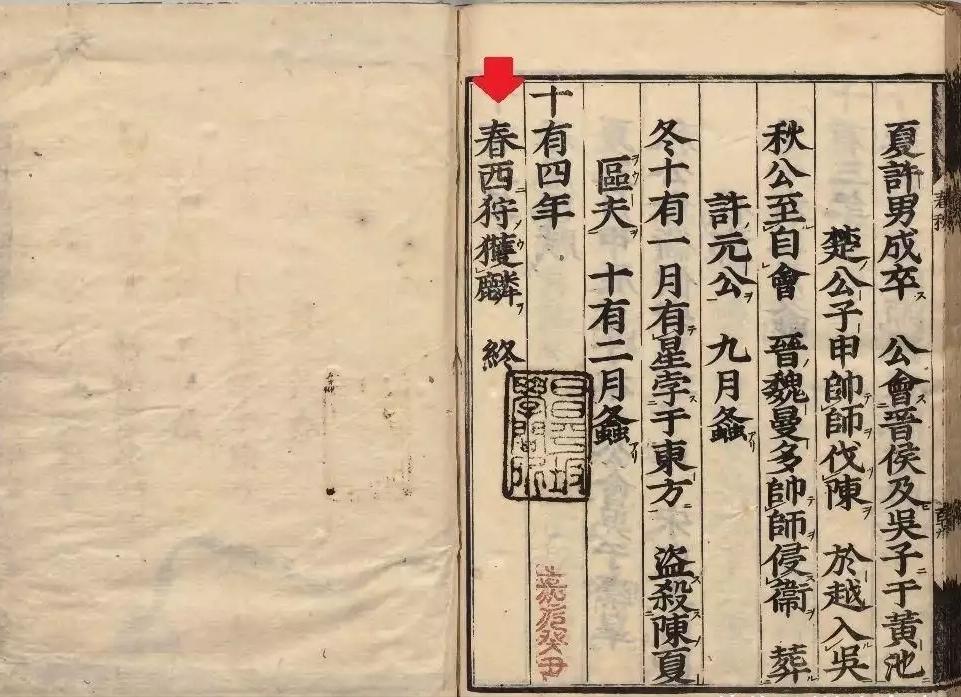 夏許男成卒 公會晉侯及吳子于黃池
楚公子申帥師伐陳 於越入吳
秋公至自會 晉魏曼多帥師侵衞 葬
許元公 九月螽
冬十有一月有星孛于東方 盜殺陳夏
區夫 十有二月螽
十有四年
春西狩獲麟 終
昌平坂學問所